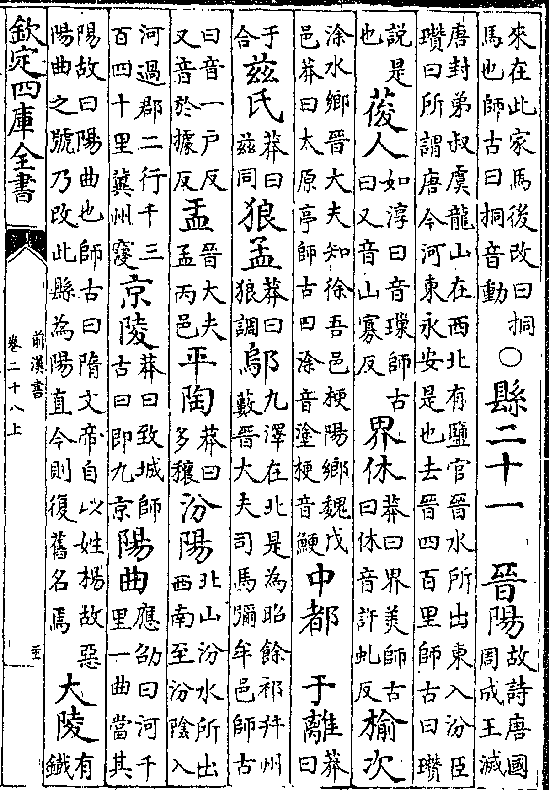 來在此家馬後改曰挏
馬也師古曰挏音動
○縣二十一　晉陽
故詩唐國
周成王滅
唐封弟叔虞龍山在西北有鹽官晉水所出東入汾臣
瓚曰所謂唐今河東永安是也去晉四百里師古曰瓚
說是
也
葰人
如淳曰音璅師古
曰又音山寡反
界休
莽曰界美師古
曰休音許虬反
榆次
涂水鄉晉大夫知徐吾邑梗陽鄉魏戊
邑莽曰太原亭師古曰涂音塗梗音鯁
中都　于離
莽
曰
于
合
茲氏
莽曰
茲同
狼孟
莽曰
狼調
鄔
九澤在北是為昭餘祁幷州
藪晉大夫司馬彌牟邑師古
曰音一戶反
又音於據反
盂
晉大夫
孟丙邑
平陶
莽曰
多穰
汾陽
北山汾水所出
西南至汾陰入
河過郡二行千三
百四十里冀州寖
京陵
莽曰致城師
古曰即九京
陽曲
應劭曰河千
里一曲當其
陽故曰陽曲也師古曰隋文帝自以姓楊故惡
陽曲之號乃改此縣為陽直今則復舊名焉
大陵
有
鐵
欽定四庫全書
前漢書
卷二十八上